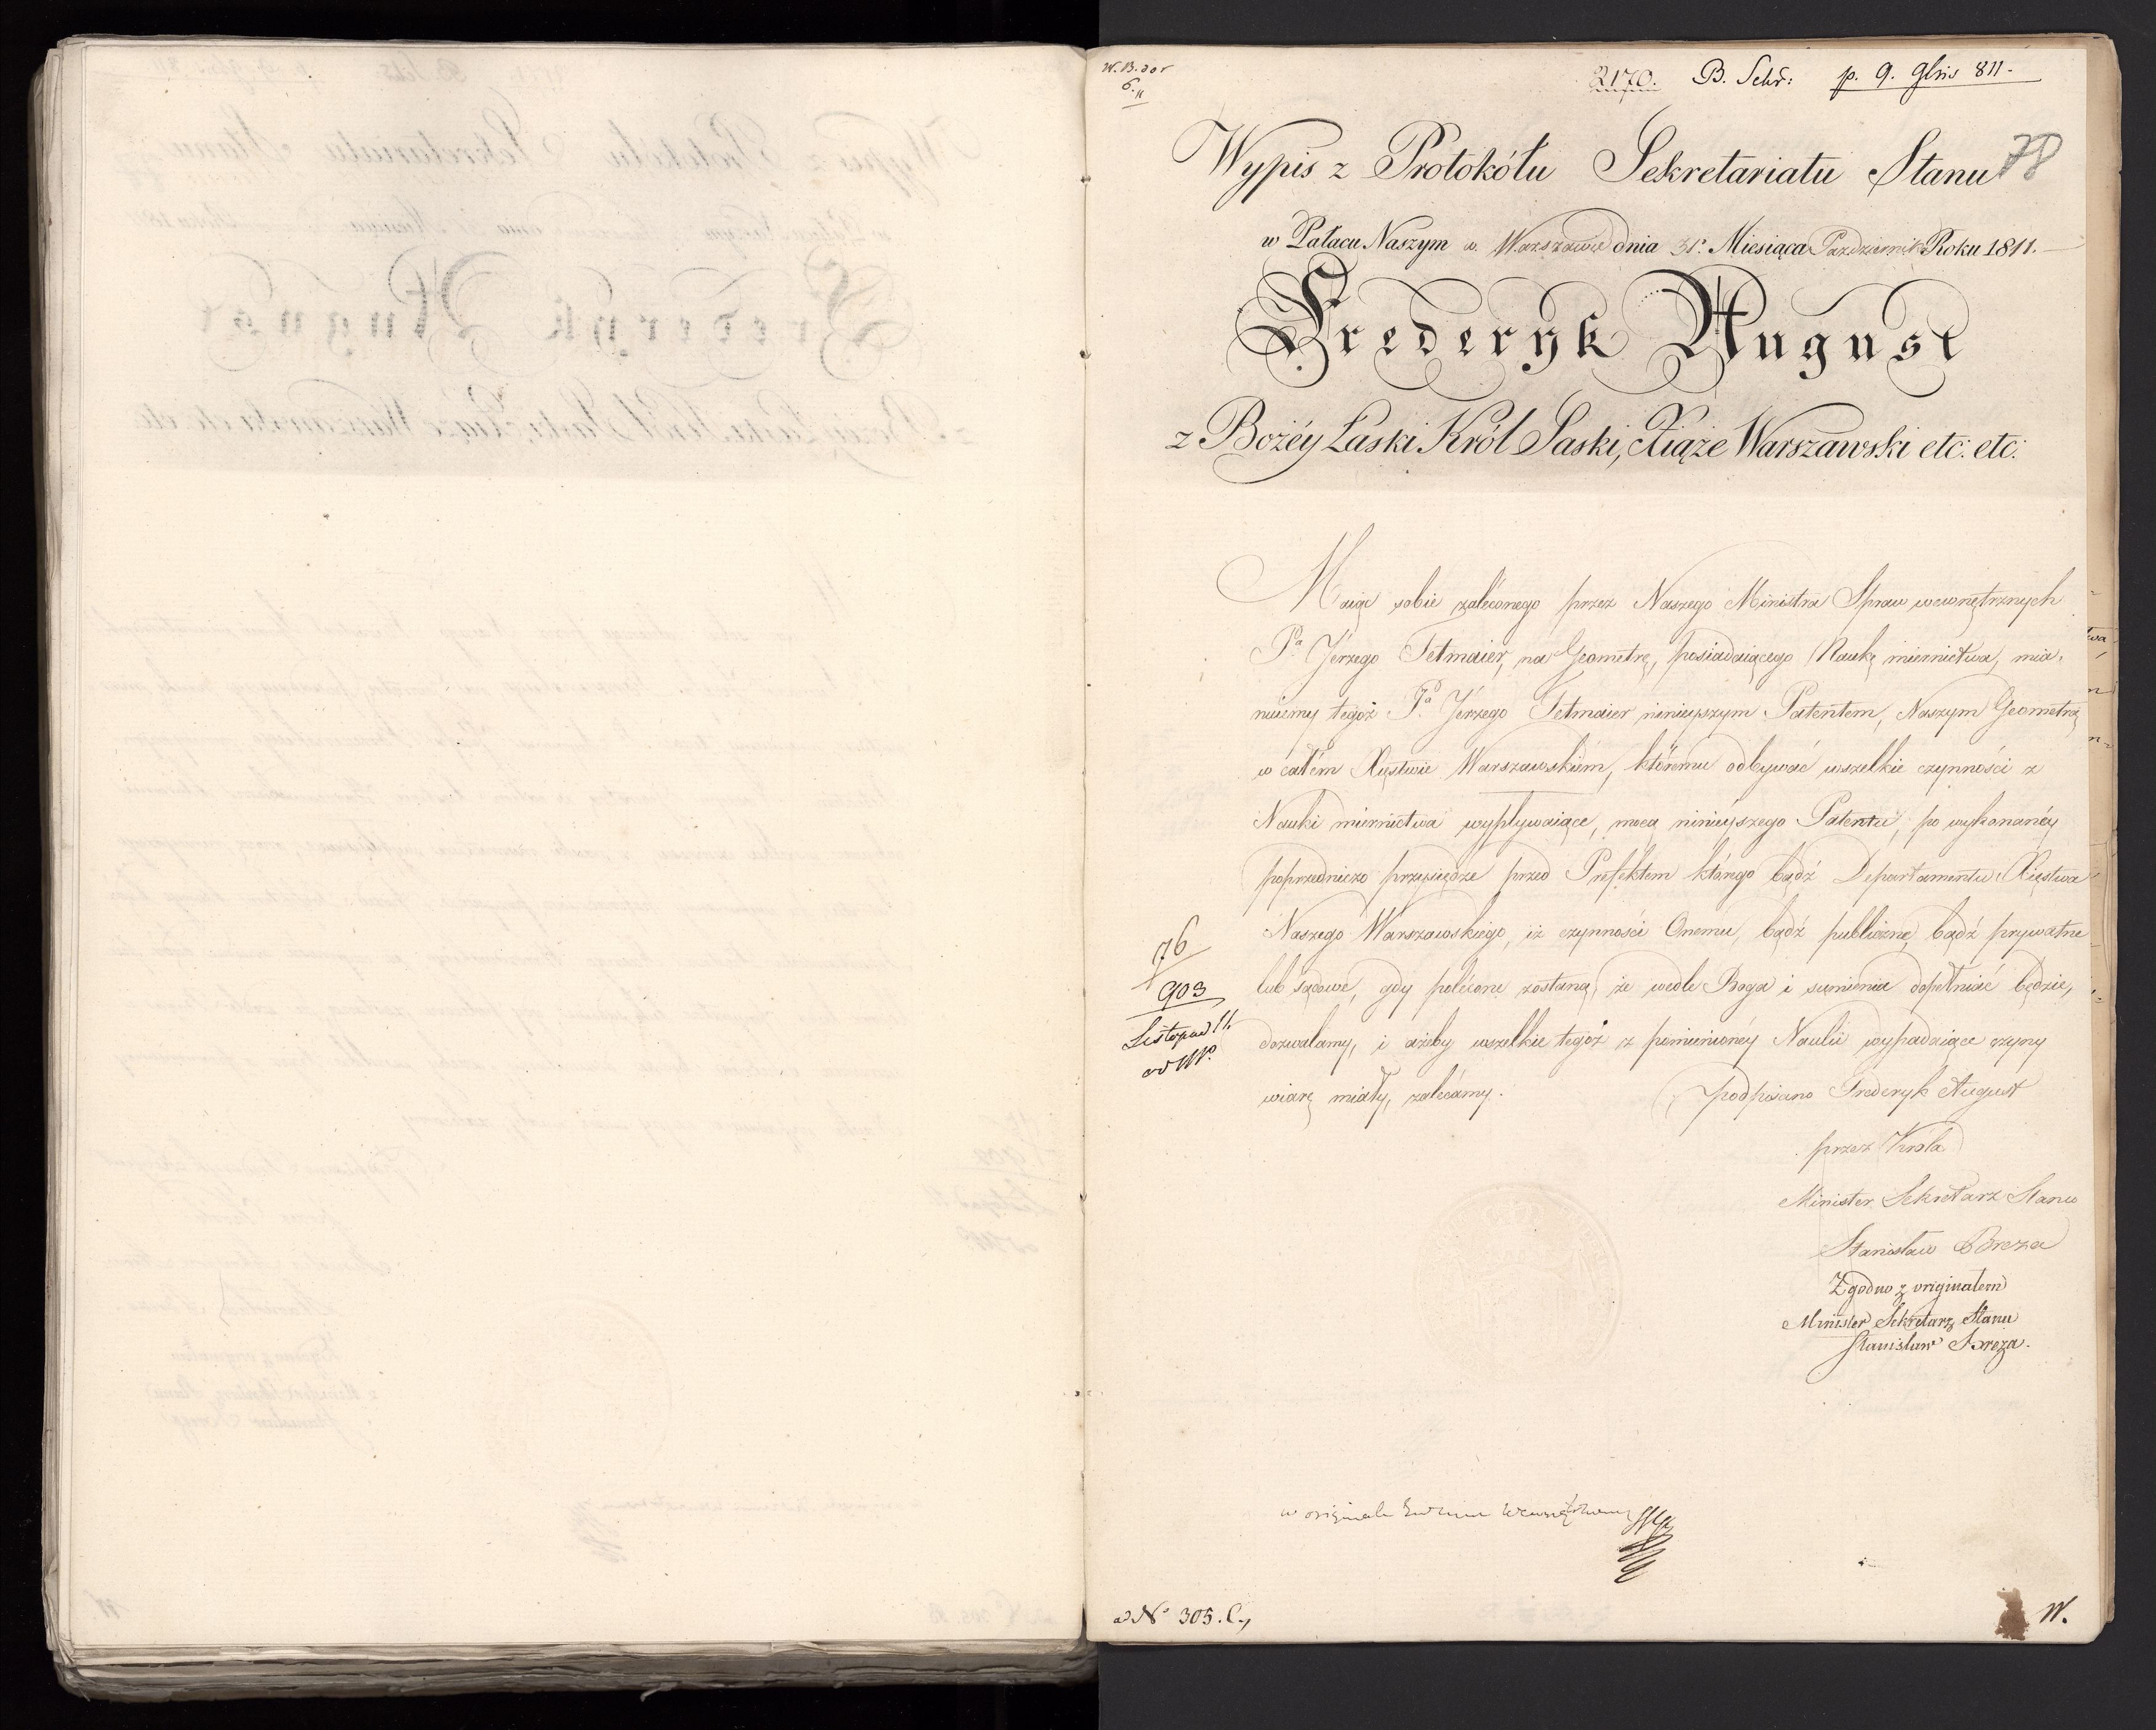 W. B. dor
6.
11
2170. B. Sekr: p. 9. 9bris 811.
Wypis z Protokółu Sekretariatu Stanu
78
w Pałacu Naszym w Warszawie dnia 31º Miesiąca Pazdziernika Roku 1811.
Frederyk August
z Bożéy Łaski Król Saski, Xiąże Warszawski etc: etc:
Maiąc sobie zaleconego przez Naszego Ministra Spraw wewnętrznych
Pa Jerzego Tetmaier, na Geometrę, posiadaiącego Naukę miernictwa, mia-
nuiemy tegoż Pa Jerzego Tetmaier ninieyszym Patentem, Naszym Geometrą
w całém Xięstwie Warszawskiém, któremu odbywać wszelkie czynności z
Nauki miernictwa wypływaiące, mocą ninieyszego Patentu, po wykonanéy
poprzedniczo przysiędze przed Prefektem którego bądź Departamentu Xięstwa
Naszego Warszawskiego, iż czynności Onemu, bądź publiczne, bądź prywatne
lub sądowe, gdy polecone zostaną, że wedle Boga i sumienia dopełniać będzie,
dozwalamy, i ażeby wszelkie tegoż z pomienionéy Nauki wypadaiące czyny
wiarę miały, zalecamy.
podpisano Frederyk August
76
903
Listopad 11.
przez Króla
Minister Sekretarz Stanu
Stanisław Breza
Zgodno z originałem
Minister Sekretarz Stanu
Stanisław Breza.
w originale
ad Nº 305. C.
W.